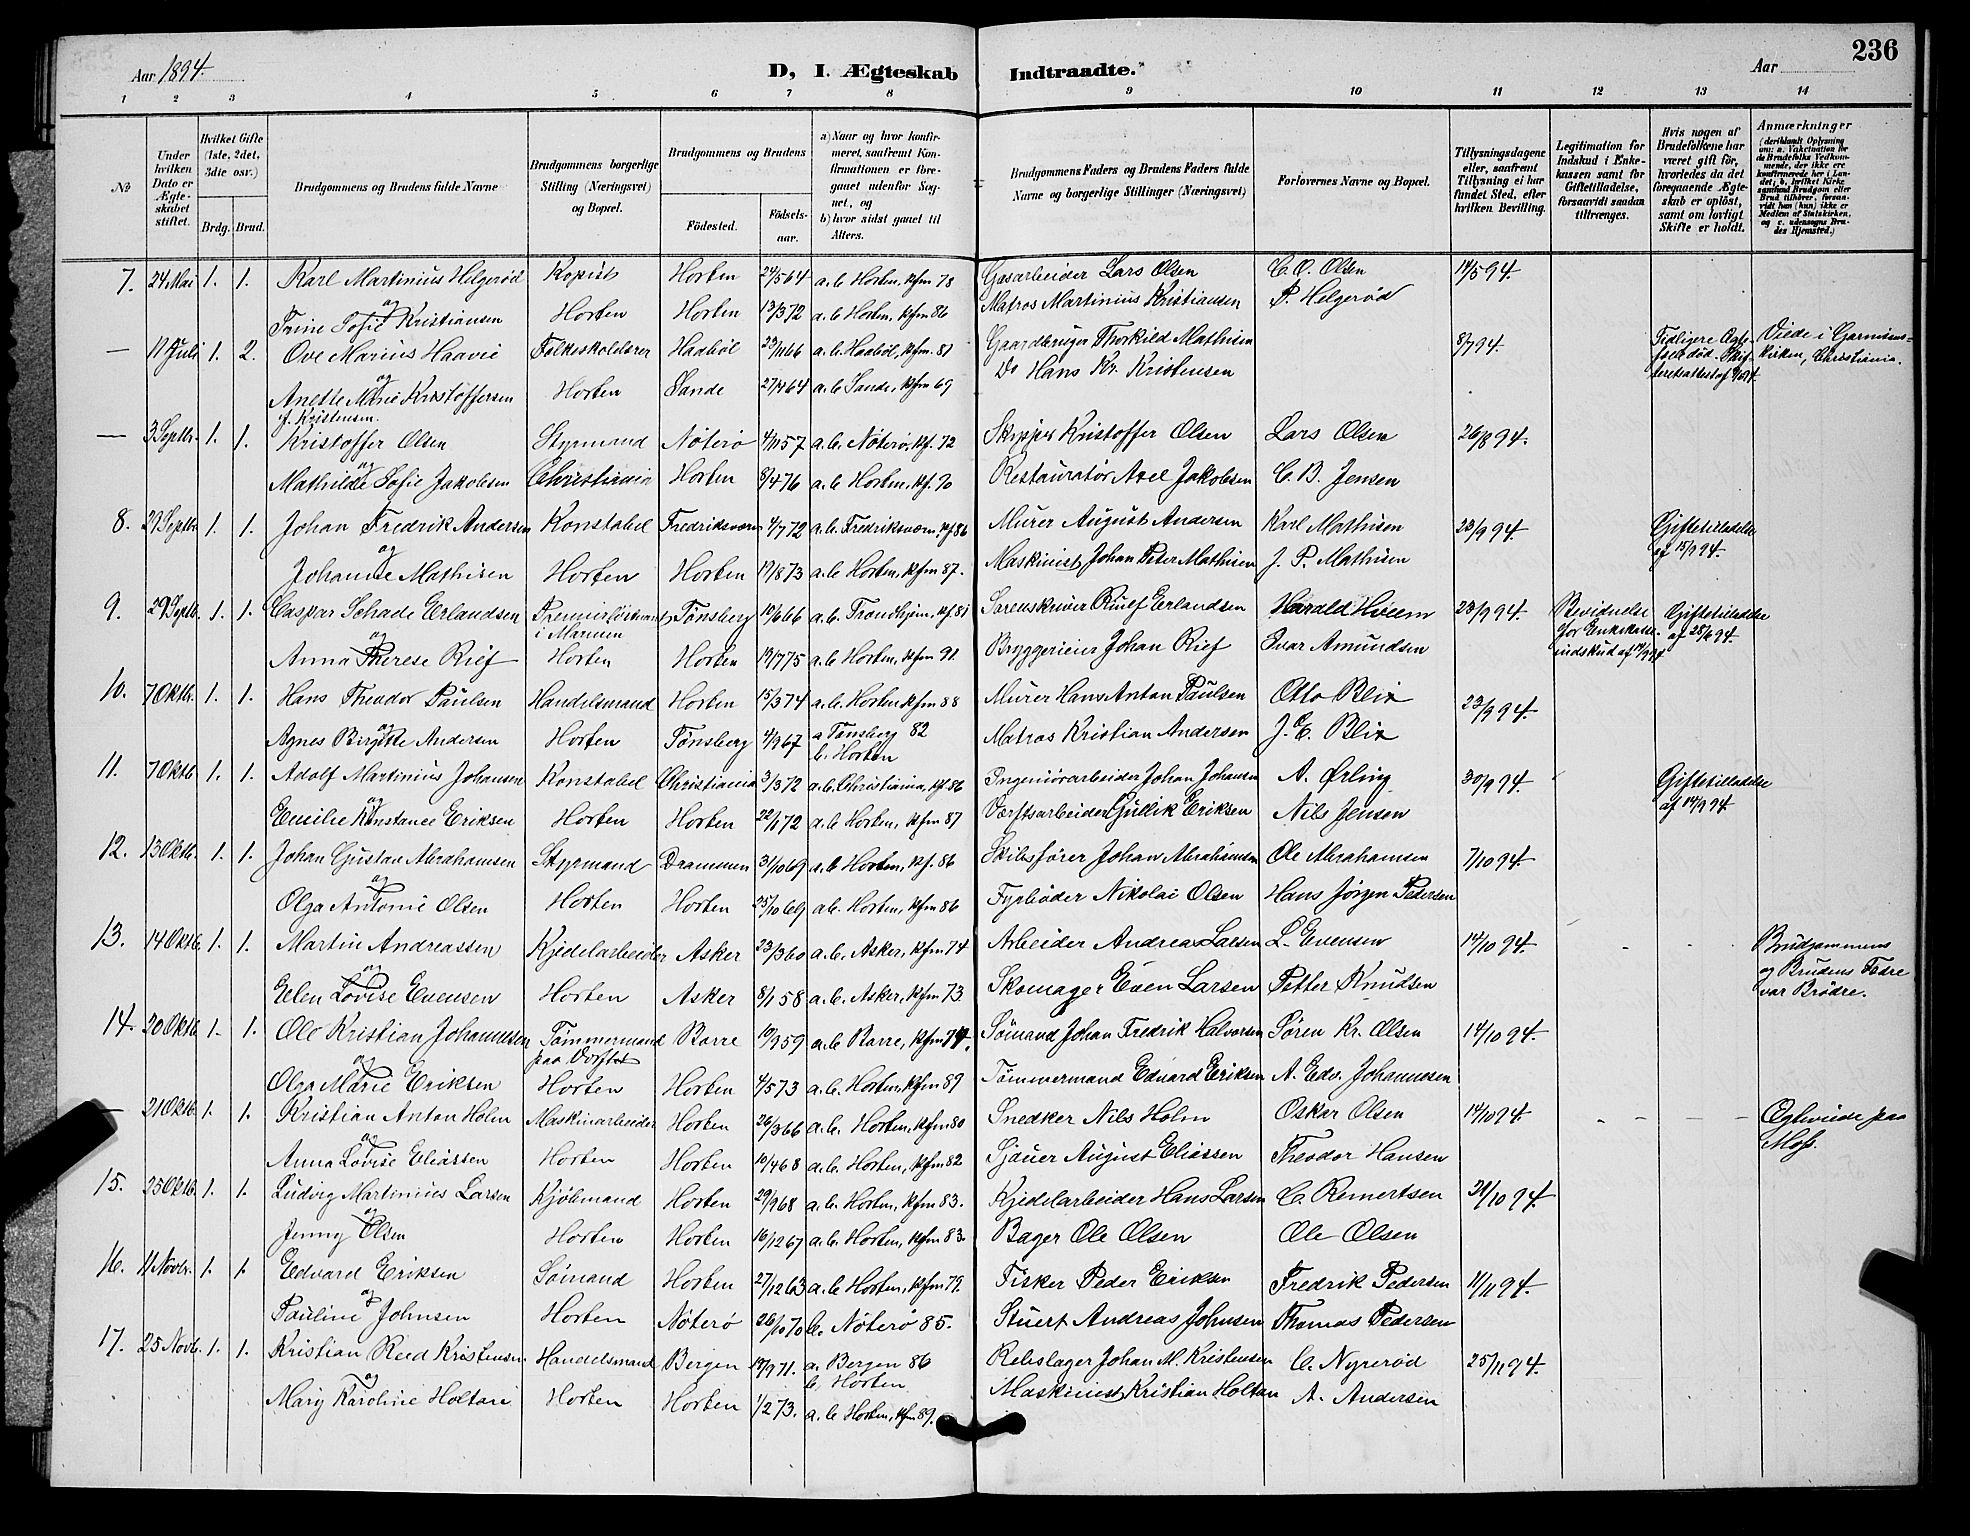 236
Aar 1894.
D, I. Ægteskab Indtraadte.
Aar
1 2 3 4 5 6 7 8 9 10 11 12 13 14
No
Under hvilken Dato er Ægteskabet stiftet.
Hvilket Gifte (1ste, 2det, 3die osv.)
Brdg. Brud.
Brudgommens og Brudens fulde Navne
Brudgommens borgerlige Stilling (Næringsvei) og Bopæl.
Brudgommens og Brudens
Fødested.
Fødselsaar.
a) Naar og hvor konfirmeret, saafremt Konfirmationen er foregaaet udenfor Sognet, og
b) hvor sidst gaaet til Alters.
Brudgommens Faders og Brudens Faders fulde Navne og borgerlige Stillinger (Næringsvei)
Forlovernes Navne og Bopæl.
Tillysningsdagene eller, saafremt Tillysning ei har fundet Sted, efter hvilken Bevilling.
Legitimation for Indskud i Enkekassen samt for Giftetilladelse, forsaavidt saadan tiltrænges.
Hvis nogen af Brudefolkene har været gift før, hvorledes da det foregaaende Ægteskab er opløst, samt om lovligt Skifte er holdt.
Anmærkninger (deriblandt Oplysning om: a. Vakcination for de Brudefolks Vedkommende, der ikke ere konfirmerede her i Landet; b. hvilket Kirkesamfund Brudgom eller Brud tilhører, forsaavidt han (hun) ikke er Medlem af Statskirken, og c. udensogns Brudes Hjemsted.)
7. 24 Mai 1. 1. Karl Martinius Helgerød Kopist Horten 24/5 64 a.b. Horten, Kfm 78 Gasarbeider Lars Olsen C. O. Olsen 14/5 94.
og
Trine Sofie Kristiansen Horten Horten 13/3 72 a.b. Horten, Kfm 86 Matros Martinius Kristiansen P. Helgerød
— 11 Juli 1. 2. Ove Marius Haavie Folkeskolelærer Haabøl 23/11 66 a.b. Haabøl, Kfm. 81 Gaardbruger Thorkild Mathisen 8/7 94. Tidligere Ægtefælle død. Viede i Garnisonskirken, Christiania.
og
Anette Marie Kristoffersen Horten Sande a.b. Sande, Kfm 69 Do Hans Kr. Kristensen
f. Kristensen.
— 3 Septbr. 1. 1. Kristoffer Olsen Styrmand Nøterø 4/11 57 a.b. Nøterø, Kf. 72 Skipper Kristoffer Olsen Lars Olsen 26/8 94.
og
Mathilde Sofie Jakobsen Christiania Horten 8/4 76 a.b Horten, Kf. 90 Restauratør Axel Jakobsen C. B. Jensen
8. 29 Septbr. 1. 1. Johan Fredrik Andersen Konstabel Fredriksværn 4/7 72 a.b. Fredriksværn, Kf 86 Murer August Andersen Karl Mathisen 23/9 94. Giftetilladelse af 15/9 94.
og
Johanne Mathisen Horten Horten 19/8 73 a.b Horten, Kfm 87. Maskinist Johan Peter Mathisen J. P. Mathisen
9. 29 Septb. 1. 1. Caspar Schade Erlandsen Premierløitnant i Marinen Tønsberg 10/6 66 a.b. Trondhjem, Kf 81 Sorenskriver Rulef Erlandsen Harald Hveem 23/9 94. Bevidnelse for Enkekasseindskud af 19/9 94 Giftetilladelse af 28/6 94.
og
Anna Therese Rief Horten Horten 19/7 75 a.b Horten, Kfm 91. Bryggerieier Johan Rief Ivar Amundsen
10. 7 Oktb. 1. 1. Hans Theodor Paulsen Handelsmand Horten 15/3 74 a.b. Horten Kfm 88 Murer Hans Anton Paulsen Otto Blix 23/9 94.
og
Agnes Birgitte Andersen Horten Tønsberg 4/9 67 a Tønsberg 82 b. Horten Matros Kristian Andersen J. C. Blix
11. 7 Oktb. 1. 1. Adolf Martinius Johansen Konstabel Christiania 3/3 72 a.b. Christiania, Kf. 86 Ingeniørarbeider Johan Johansen A. Ørling 30/9 94. Giftetilladelse af 19/9 94.
og
Emilie Konstance Eriksen Horten Horten 22/1 72 a.b Horten, Kfm 87 Værftsarbeider Gullik Eriksen Nils Jensen
12. 13 Oktb. 1. 1. Johan Gustav Abrahamsen Styrmand Drammen 31/10 69 a.b Horten, Kf. 86 Skibsfører Johan Abrahamsen Ole Abrahamsen 7/10 94.
og
Olga Antonie Olsen Horten Horten 25/10 69 ab. Horten, Kfm 86 Fyrbøder Nikolai Olsen Hans Jørgen Pedersen
13. 14 Oktb. 1. 1. Martin Andreassen Kjedelarbeider Asker 23/3 60 a.b. Asker, Kfm 74 Arbeider Andreas Larsen L. Evensen 14/10 94. Brudgommens og Brudens Fædre var Brødre.
og
Elen Lovise Evensen Horten Asker 8/1 58 a.b. Asker, Kfm 73. Skomager Even Larsen Petter Knudsen
14. 20 Oktb. 1. 1. Ole Kristian Johannessen Tømmermand paa Værftet Borre 19/9 59 a.b Borre, Kfm 74. Sømand Johan Fredrik Halvorsen Søren Kr. Olsen 14/10 94.
og
Olga Marie Eriksen Horten Horten 4/5 73 a.b. Horten, Kfm 89 Tømmermand Edvard Eriksen A. Edv. Johannesen
— 21 Oktb. 1. 1. Kristian Anton Holm Maskinarbeider Horten 26/3 66 a.b. Horten, Kfm 80 Snedker Nils Holm Oskar Olsen 14/10 94. Ægteviede paa Moss.
og
Anna Lovise Eliassen Horten Horten 10/4 68 a.b. Horten, Kfm 82 Sjauer August Eliassen Theodor Hansen
15. 25 Oktb. 1. 1. Ludvig Martinius Larsen Kjøbmand Horten 29/9 68 a.b. Horten, Kfm 83. Kjedelarbeider Hans Larsen C. Reinertsen 21/10 94.
og
Jenny Olsen Horten Horten 16/12 67 a.b. Horten, Kfm 83. Bager Ole Olsen Ole Olsen
16. 11 Novbr. 1. 1. Edvard Eriksen Sømand Horten 27/12 63 a.b Horten, Kfm 79. Fisker Peder Eriksen Fredrik Pedersen 11/11 94.
og
Pauline Johnsen Horten Nøterø 26/10 70 b. Nøterø 85. Stuert Andreas Johnsen Thomas Pedersen
17. 25 Novb. 1. 1. Kristian Reed Kristensen Handelsmand Bergen 19/9 71. a. Bergen 86 b. Horten Rebslager Johan M. Kristensen C. Nyrerød 25/11 94.
og
Mary Karoline Holtan Horten Horten 1/2 73. a.b Horten, Kfm 89. Maskinist Kristian Holtan A. Andersen